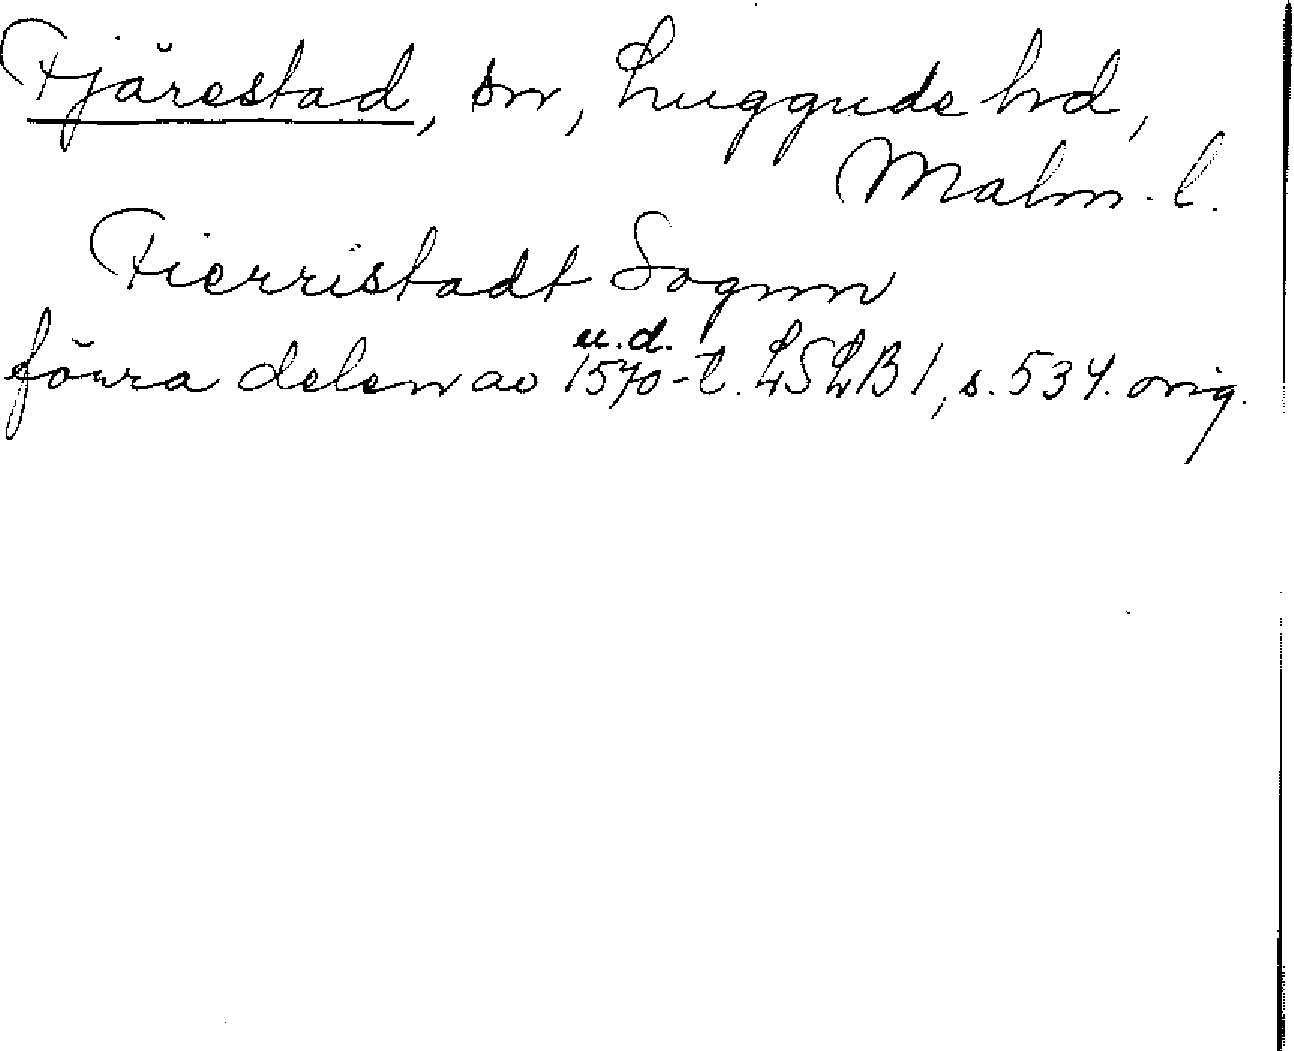 Fjärestad, sn, Luggude hd,
Malm. l.
Fierristadt Sognn
u.d.
förra delen av 1570-t. LSLB 1, s. 534. orig.